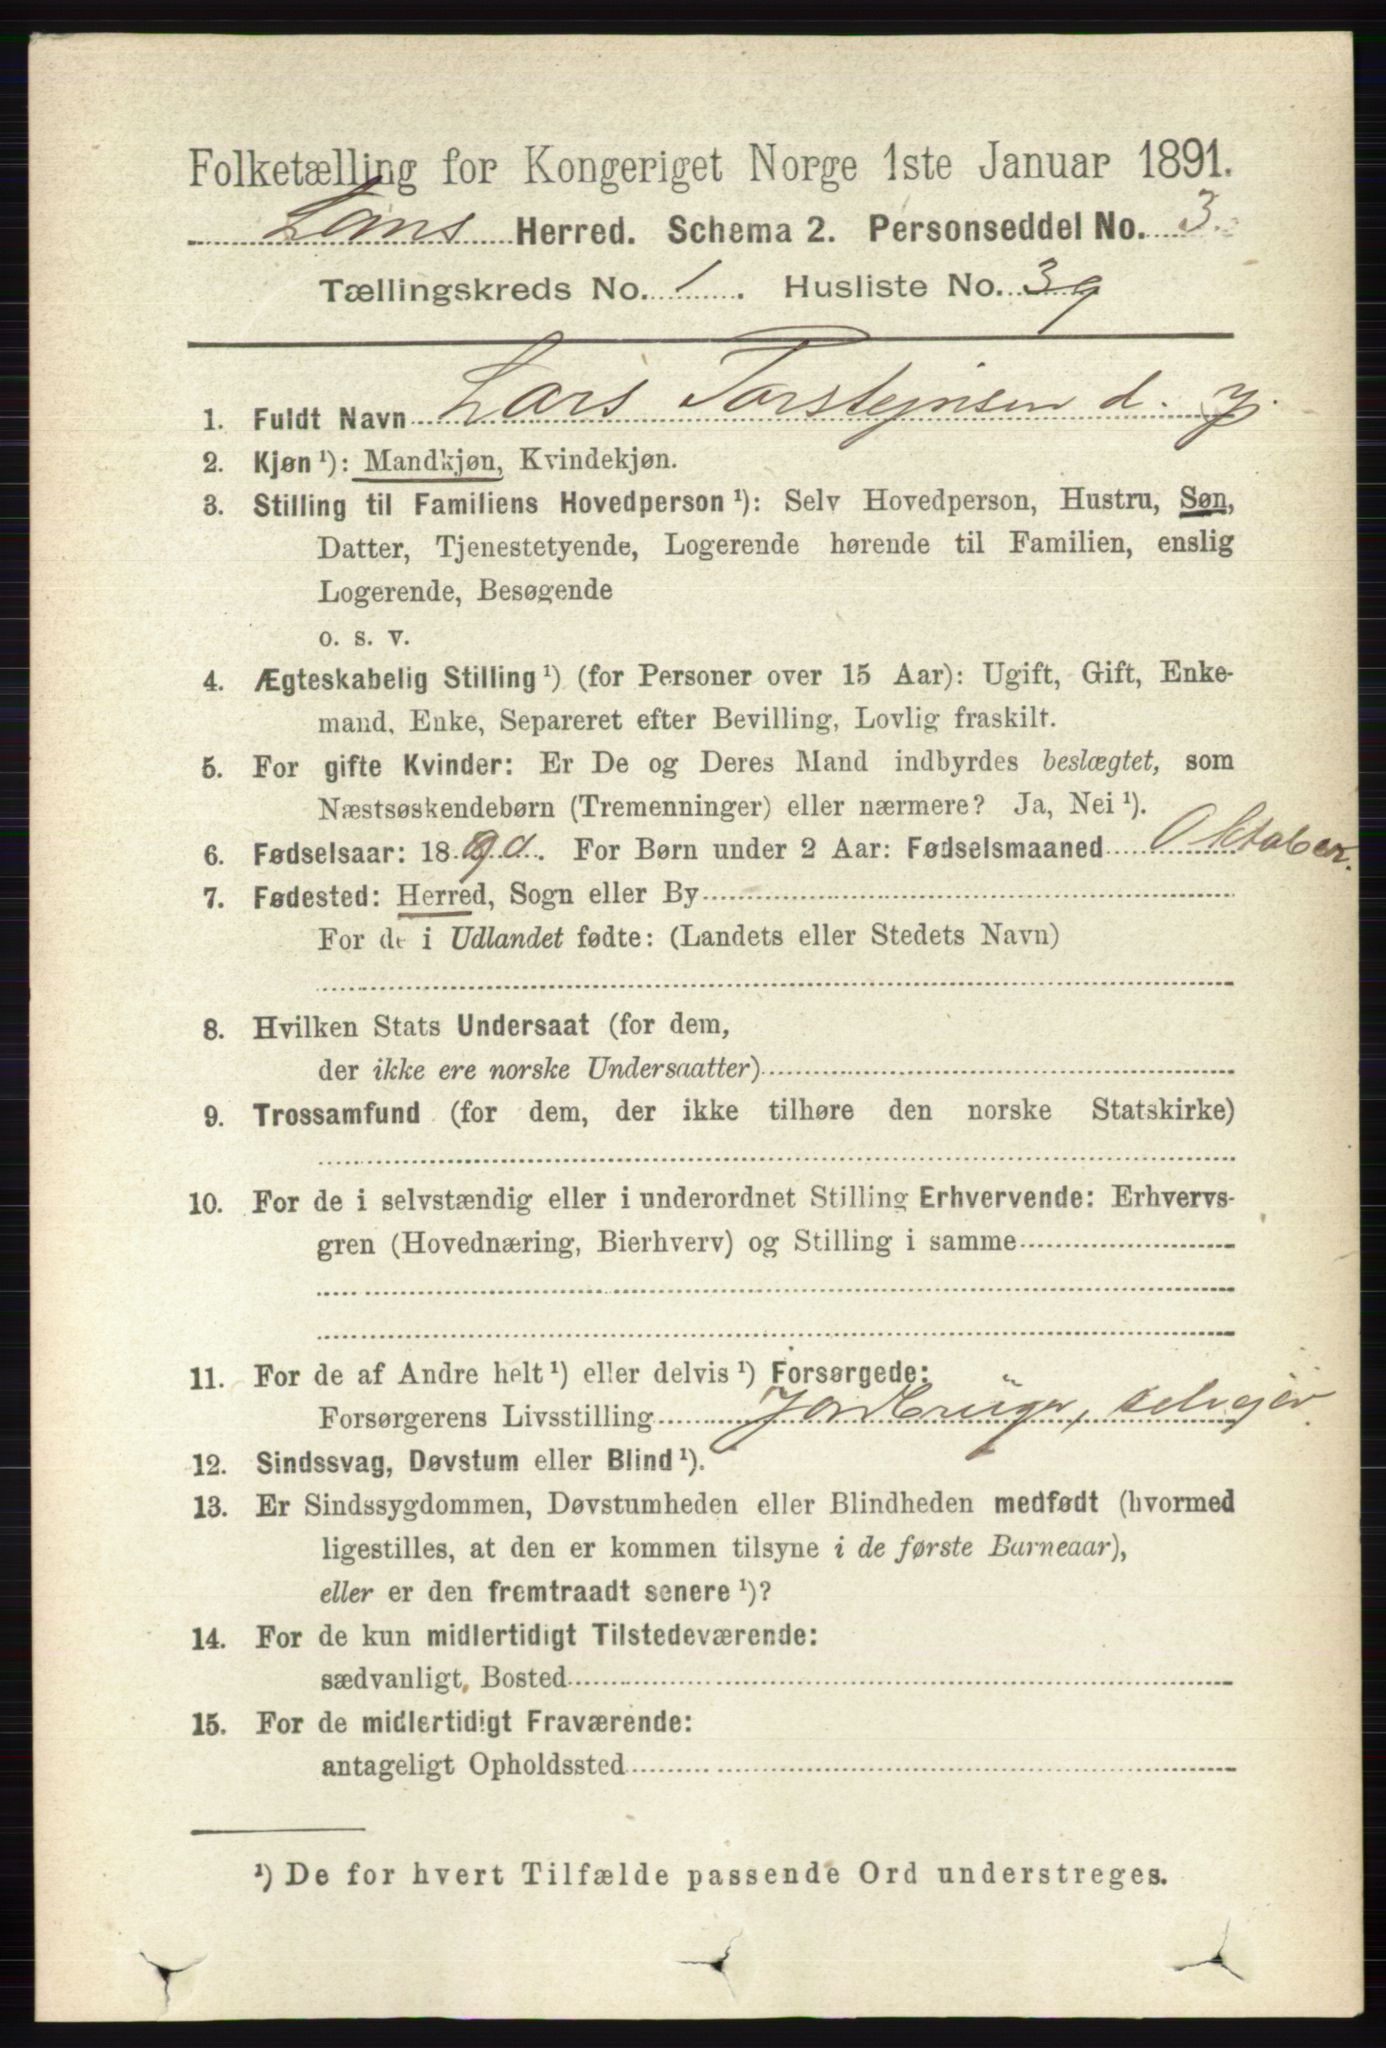 Folketælling for Kongeriget Norge 1ste Januar 1891.
Lans Herred. Schema 2. Personseddel No. 3.
Tællingskreds No. 1. Husliste No. 39
1. Fuldt Navn Lars Torstejnsen d. y.
2. Kjøn ¹): Mandkjøn, Kvindekjøn.
3. Stilling til Familiens Hovedperson ¹): Selv Hovedperson, Hustru, Søn,
Datter, Tjenestetyende, Logerende hørende til Familien, enslig
Logerende, Besøgende
o. s. v.
4. Ægteskabelig Stilling ¹) (for Personer over 15 Aar): Ugift, Gift, Enke-
mand, Enke, Separeret efter Bevilling, Lovlig fraskilt.
5. For gifte Kvinder: Er De og Deres Mand indbyrdes beslægtet, som
Næstsøskendebørn (Tremenninger) eller nærmere? Ja, Nei ¹).
6. Fødselsaar: 1890. For Børn under 2 Aar: Fødselsmaaned Oktober.
7. Fødested: Herred, Sogn eller By
For de i Udlandet fødte: (Landets eller Stedets Navn)
8. Hvilken Stats Undersaat (for dem,
der ikke ere norske Undersaatter)
9. Trossamfund (for dem, der ikke tilhøre den norske Statskirke)
10. For de i selvstændig eller i underordnet Stilling Erhvervende: Erhvervs-
gren (Hovednæring, Bierhverv) og Stilling i samme
11. For de af Andre helt ¹) eller delvis ¹) Forsørgede:
Forsørgerens Livsstilling Jordbrüger, selvejer.
12. Sindssvag, Døvstum eller Blind ¹).
13. Er Sindssygdommen, Døvstumheden eller Blindheden medfødt (hvormed
ligestilles, at den er kommen tilsyne i de første Barneaar),
eller er den fremtraadt senere ¹)?
14. For de kun midlertidigt Tilstedeværende:
sædvanligt, Bosted
15. For de midlertidigt Fraværende:
antageligt Opholdssted
¹) De for hvert Tilfælde passende Ord understreges.